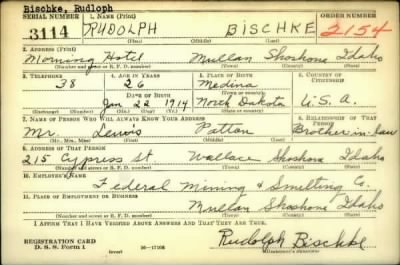 Bischke, Rudloph
SERIAL NUMBER 1. NAME (Print) ORDER NUMBER
3114 RUDOLPH BISCHKE 2154
(First) (Middle) (Last)
2. ADDRESS (Print)
Morning Hotel Mullan Shoshone Idaho
(Number and street or R. F. D. number) (Town) (County) (State)
3. TELEPHONE 4. AGE IN YEARS 5. PLACE OF BIRTH 6. COUNTRY OF CITIZENSHIP
38 26 Medina
DATE OF BIRTH
Jan 28 1914 North Dakota U.S.A.
(Mo.) (Day) (Yr.) (State or country)
7. NAME OF PERSON WHO WILL ALWAYS KNOW YOUR ADDRESS 8. RELATIONSHIP OF THAT PERSON
Mr. Lewis Patton Brother-in-law
(Mr., Mrs., Miss) (First) (Middle) (Last)
9. ADDRESS OF THAT PERSON
215 Cypress St. Wallace Shoshone Idaho
(Number and street or R. F. D. number) (Town) (County) (State)
10. EMPLOYER'S NAME
Federal Mining & Smelting Co.
11. PLACE OF EMPLOYMENT OR BUSINESS
Mullan Shoshone Idaho
(Number and street or R. F. D. number) (Town) (County) (State)
I AFFIRM THAT I HAVE VERIFIED ABOVE ANSWERS AND THAT THEY ARE TRUE.
REGISTRATION CARD
D. S. S. Form 1 (over) 16-17105
Rudolph Bischke
(Registrant's signature)